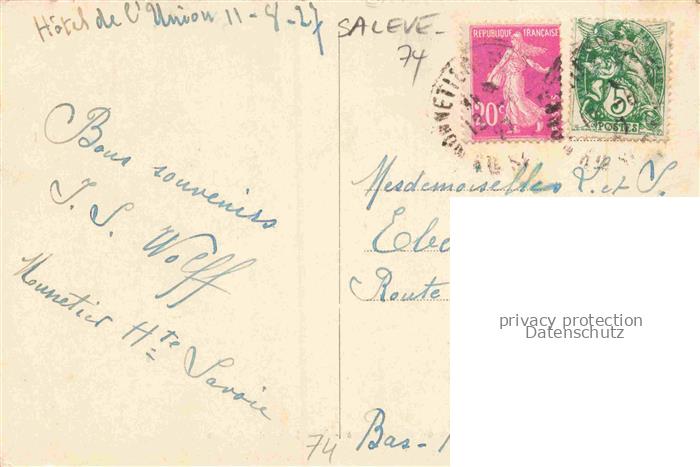 Hôtel de l'Union 11-8-27
SALEVE-
74
REPUBLIQUE FRANÇAISE
20c
5c
POSTES
MONNETIER
Bons souvenirs
J. S. Wolff
Monnetier Hte Savoie
Mesdemoiselles L. et S.
Route
Bas-
74
privacy protection
Datenschutz